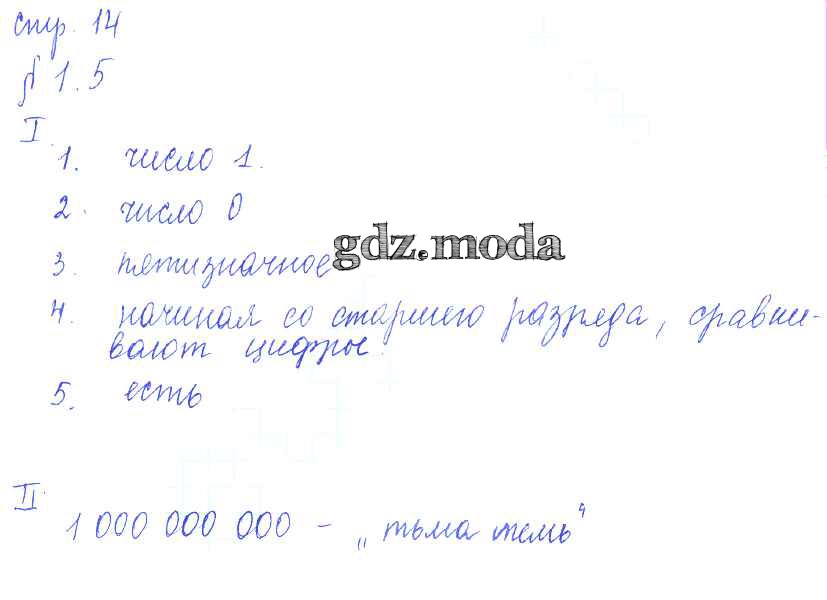 стр. 14
§ 1.5
I.
1. число 1.
2. число 0
gdz.moda
3. пятизначное
4. начиная со старшего разряда, сравни-
вают цифры.
5. есть
II.
1 000 000 000 – „тьма темь“